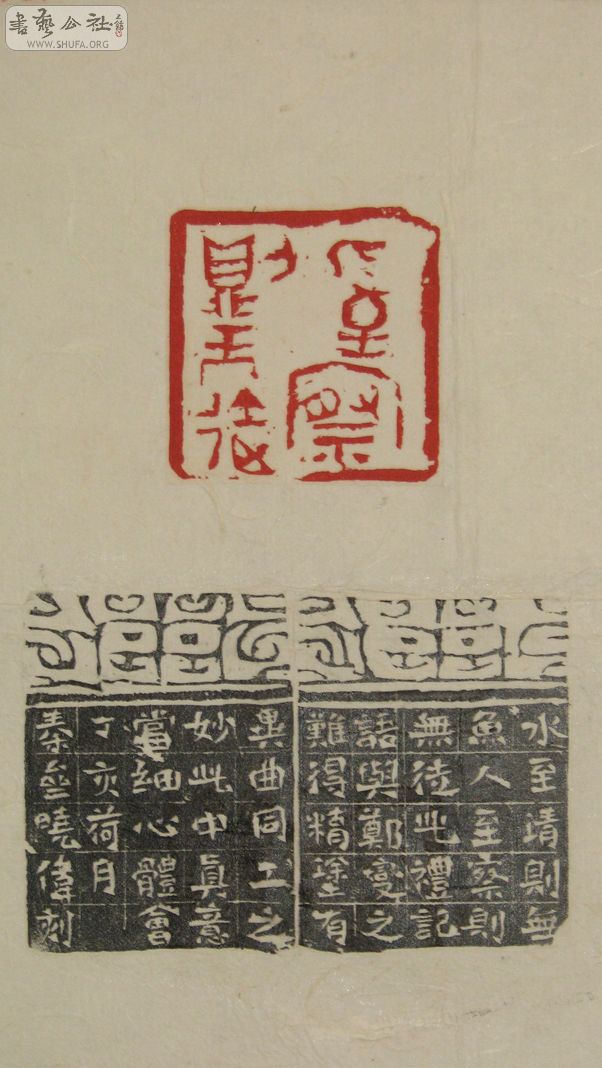 書藝公社
WWW.SHUFA.ORG
人至察
則无徒
水至清則無
魚人至察則
無徒此禮記
語與鄭燮之
難得糊塗有
異曲同工之
妙此中眞意
當細心體會
丁亥荷月
曉偉刻